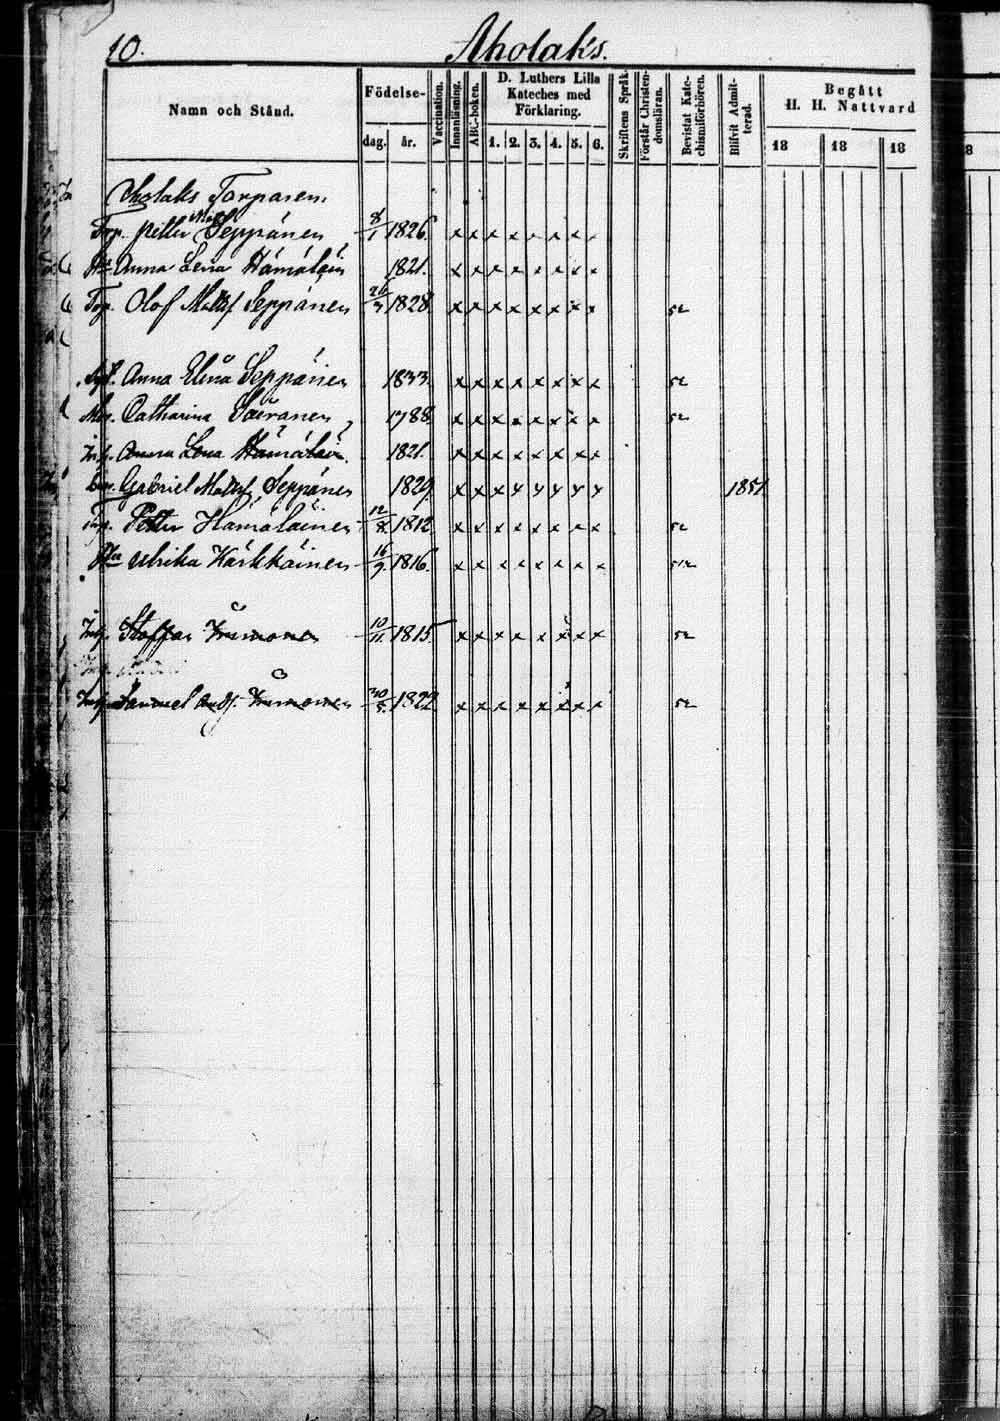 10.
Aholaks.
Namn och Stånd.
Födelse-
dag. år.
Vaccination.
Innanläsning.
ABC-boken.
D. Luthers Lilla
Kateches med
Förklaring.
1. 2. 3. 4. 5. 6.
Skriftens Språk
Förstår Christen-
domsläran.
Bevistat Kate-
chismiförhören.
Blifvit Admit-
terad.
Begått
H. H. Nattvard
18 18 18
8
Aholaks Torparen
Torp. Petter Matsf Seppänen 8/1 1826. x x x x x x x x
Hu Anna Lena Hämäläin 1821. x x x x x x x x
Torp. Olof Mattsf Seppänen 26/3 1828 x x x x x x x x 52
Anna Elina Seppänen 1833. x x x x x x x x 52
Mor. Catharina 1788 x x x x x x x x 52
Inh. Anna Lena Hämäläin. 1821. x x x x x x x x
Gabriel Mattsf Seppänen 1829. x x x x x x x x 1851
Petter Hämäläinen 12/8 1812 x x x x x x x x 52
Ulrika Kärkkäinen 16/9. 1816. x x x x x x x x 52
Inh. Staffan 10/11. 1815 x x x x x x x x 52
Inh. Samuel 30/8. 1822 x x x x x x x x 52